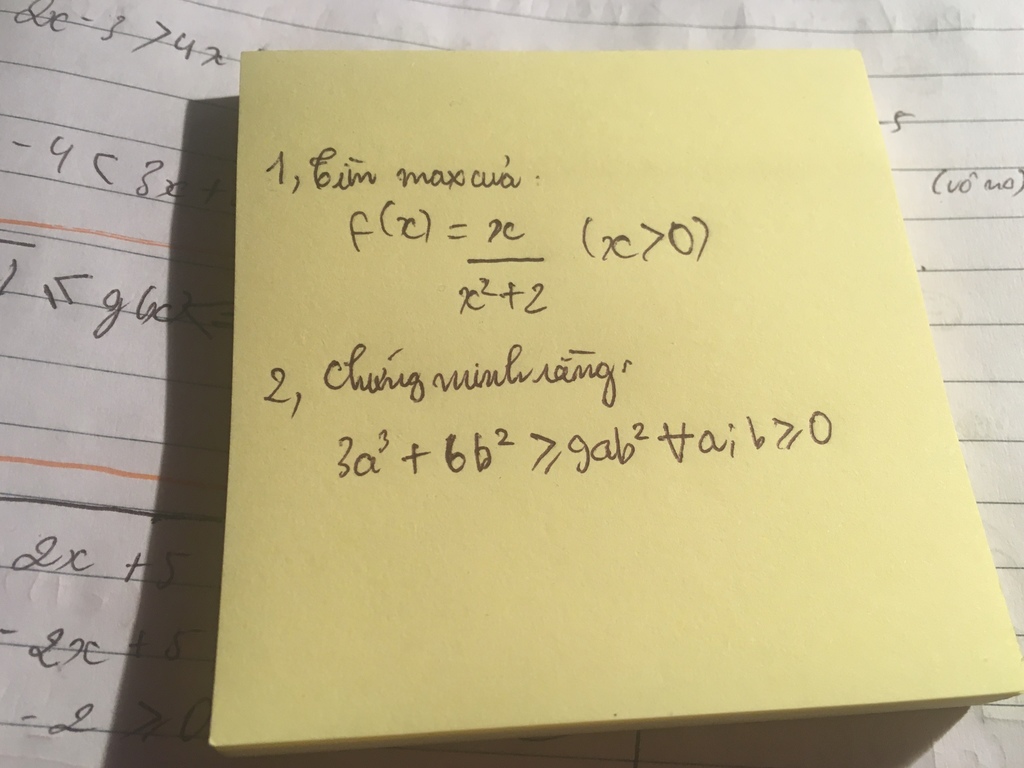 2x-3>4x
-4<3x+
-5
(vô no)
1, Tìm max của:
f(x) = x/(x²+2) (x>0)
2, Chứng minh rằng:
3a³ + 6b² ≥ 9ab² ∀a;b≥0
2x + 5
-2x + 5
-2 ≥ 0